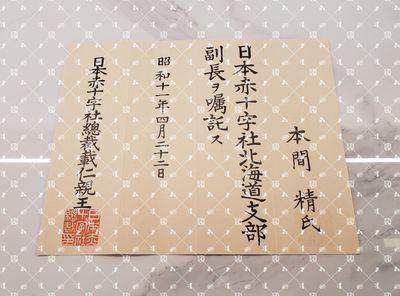 本間精氏
日本赤十字社北海道支部
副長ヲ嘱託ス
昭和十一年四月二十二日
日本赤十字社總裁載仁親王